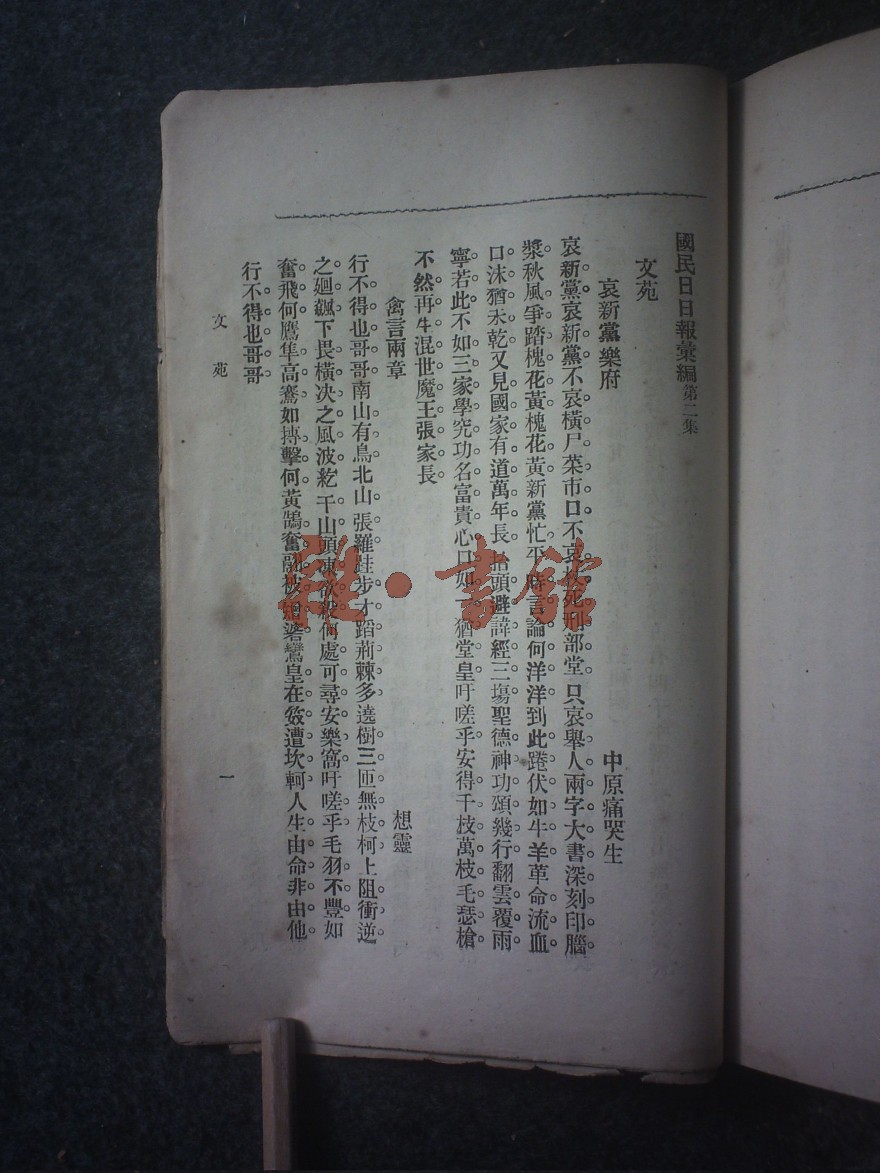 國民日日報彙編 第二集
文苑
哀新黨樂府 中原痛哭生
哀新黨哀新黨不哀橫尸菜市口不哀杖死刑部堂只哀舉人兩字大書深刻印腦
漿秋風爭踏槐花黃槐花黃新黨忙平時言論何洋洋到此踡伏如牛羊革命流血
口沫猶未乾又見國家有道萬年長抬頭避諱經三塲聖德神功頌幾行翻雲覆雨
寧若此不如三家學究功名富貴心口如一猶堂皇吁嗟乎安得千枝萬枝毛瑟槍
不然再生混世魔王張家長
禽言兩章 想靈
行不得也哥哥南山有鳥北山張羅跬步才蹈荊棘多遶樹三匝無枝柯上阻衝逆
之廻飆下畏橫决之風波紇干山頭凍欲殺何處可尋安樂窩吁嗟乎毛羽不豐如
奮飛何鷹隼高鶱如搏擊何黃鵠奮翮被矰鸞皇在笯遭坎軻人生由命非由他
行不得也哥哥
文苑 一
雅·書館